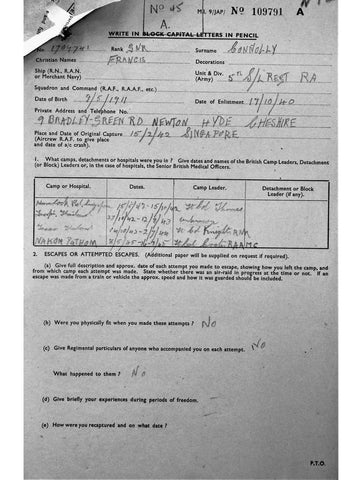 Nº 45
A.
M.I. 9/JAP/ Nº 109791 A
WRITE IN BLOCK CAPITAL LETTERS IN PENCIL
No. Rank GNR Surname CONNOLLY
Christian Names FRANCIS Decorations
Ship (R.N., R.A.N. or Merchant Navy) Unit & Div. (Army) 5TH S/L REST RA
Squadron and Command (R.A.F., R.A.A.F., etc.)
Date of Birth 7/5/1911 Date of Enlistment 17/10/40
Private Address and Telephone No.
9 BRADLEY-GREEN RD NEWTON HYDE CHESHIRE
Place and Date of Original Capture 15/2/42 SINGAPORE
(Aircrew R.A.F. to give place
and date of a/c crash).
1. What camps, detachments or hospitals were you in? Give dates and names of the British Camp Leaders, Detachment
(or Block) Leaders or, in the case of hospitals, the Senior British Medical Officers.
Camp or Hospital. Dates. Camp Leader. Detachment or Block Leader (if any).
Lt Col Thomas
unknown
Lt Col Knights
NAKOM PATHOM Lt Col
2. ESCAPES OR ATTEMPTED ESCAPES. (Additional paper will be supplied on request if required).
(a) Give full description and approx. date of each attempt you made to escape, showing how you left the camp, and
from which camp each attempt was made. State whether there was an air-raid in progress at the time or not. If an
escape was made from a train or vehicle the approx. speed and how it was guarded should be included.
(b) Were you physically fit when you made these attempts? No
(c) Give Regimental particulars of anyone who accompanied you on each attempt. No
What happened to them? No
(d) Give briefly your experiences during periods of freedom. –
(e) How were you recaptured and on what date?
P.T.O.